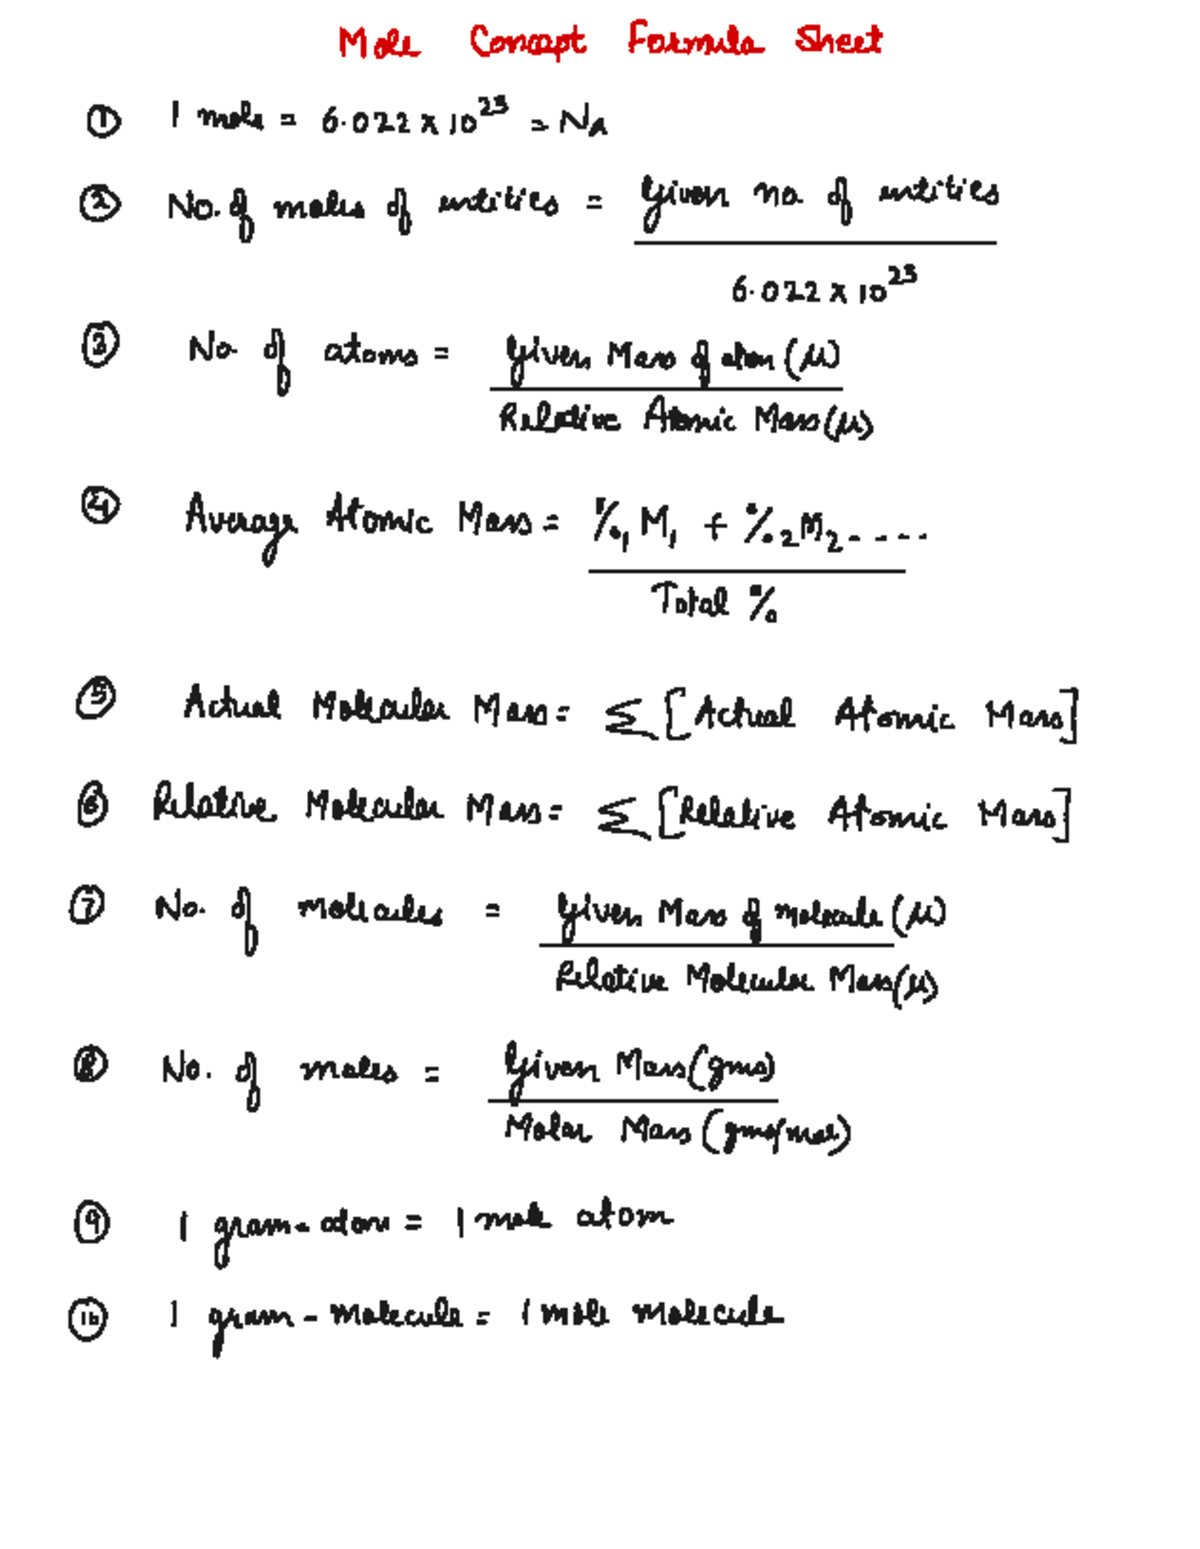 Mole Concept Formula Sheet
① 1 mole = 6.022 x 10²³ = Nᴀ
② No. of moles of entities = Given no. of entities
6.022 x 10²³
③ No. of atoms = Given Mass of atom (μ)
Relative Atomic Mass (μ)
④ Average Atomic Mass = %₁ M₁ + %₂ M₂ .....
Total %
⑤ Actual Molecular Mass = Σ [Actual Atomic Mass]
⑥ Relative Molecular Mass = Σ [Relative Atomic Mass]
⑦ No. of molecules = Given Mass of molecule (μ)
Relative Molecular Mass (μ)
⑧ No. of moles = Given Mass (gms)
Molar Mass (gms/mol)
⑨ 1 gram-atom = 1 mole atom
⑩ 1 gram-molecule = 1 mole molecule